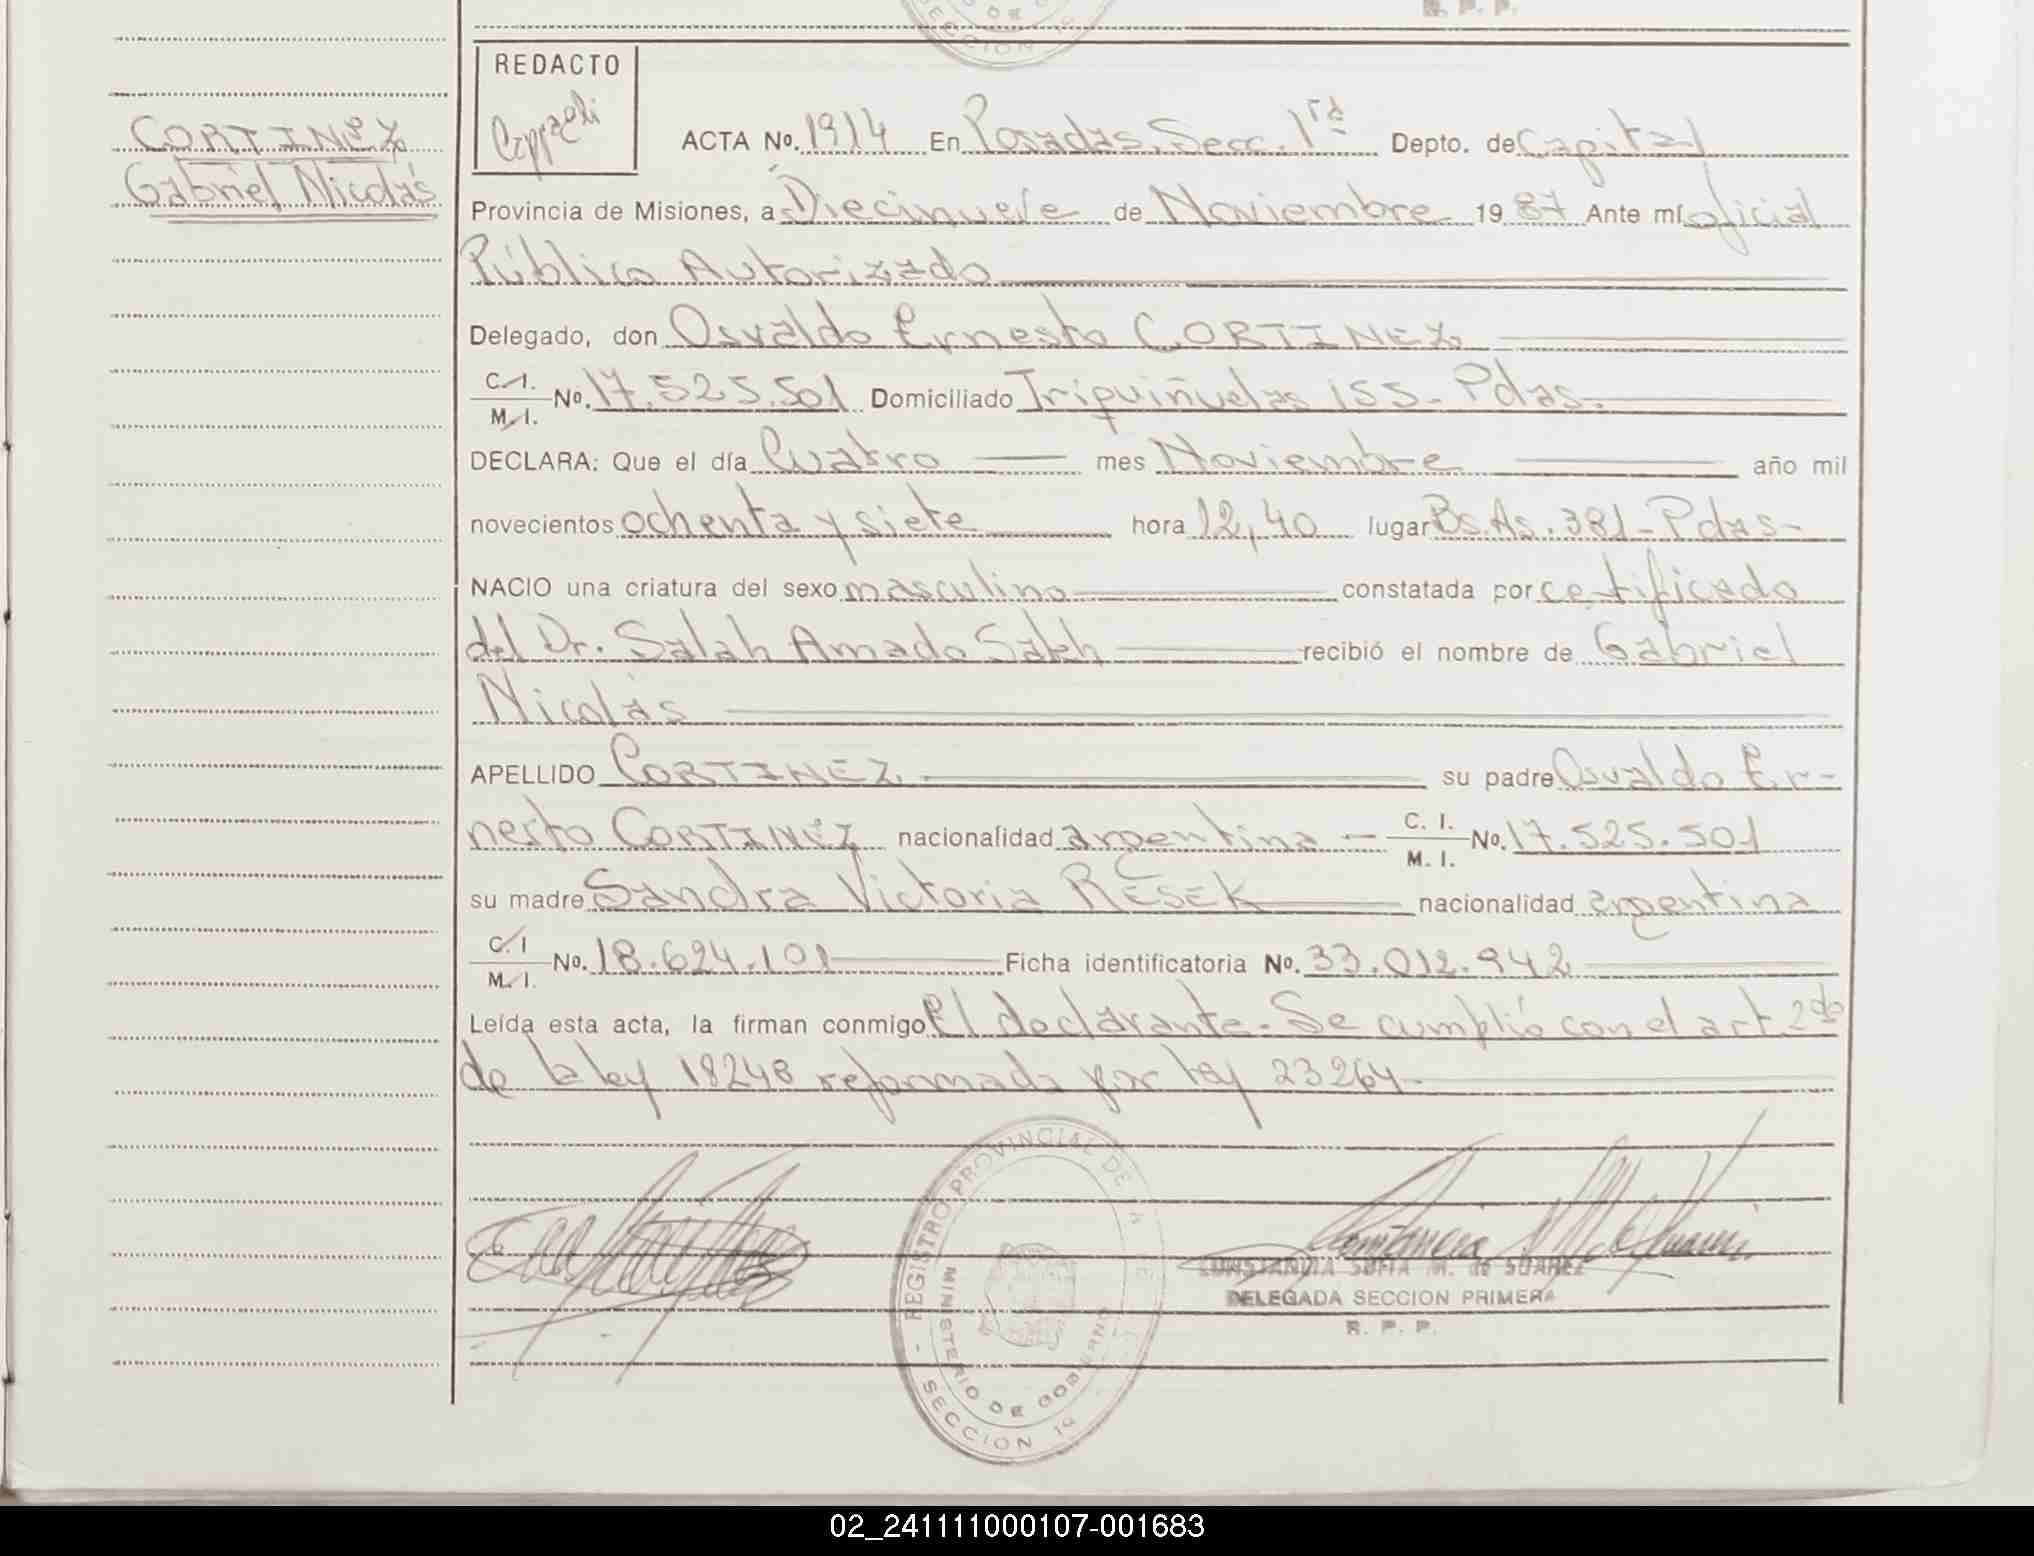 R. P. P.
DE
SECCION 1ª
REDACTO
CORTINEZ
Gabriel Nicolás
ACTA No. 1914 En Posadas. Secc. 1ra Depto. de Capital
Provincia de Misiones, a Diecinueve de Noviembre 19 87 Ante mí oficial
Público Autorizado
Delegado, don Osvaldo Ernesto CORTINEZ
C. I.
M. I. No. 17.525.501 Domiciliado Triquiñuelas 155- Pdas.
DECLARA: Que el día Cuatro mes Noviembre año mil
novecientos ochenta y siete hora 12,40 lugar Bs.As. 381-Pdas-
NACIO una criatura del sexo masculino constatada por certificado
del Dr. Salah Amado Saleh recibió el nombre de Gabriel
Nicolás
APELLIDO CORTINEZ su padre Osvaldo Er-
nesto CORTINEZ nacionalidad argentina - C. I.
M. I. No. 17.525.501
su madre Sandra Victoria RESEK nacionalidad argentina
C. I
M. I. No. 18.624.101 Ficha identificatoria No. 33.012.942
Leída esta acta, la firman conmigo El declarante. Se cumplió con el art 2do
de la ley 18248 reformada por ley 23264-
REGISTRO PROVINCIAL DE
MINISTERIO DE GOBIERNO
SECCION 1ª
CONSTANCIA SOFIA M. de SUAREZ
DELEGADA SECCION PRIMERA
R. P. P.
02_241111000107-001683